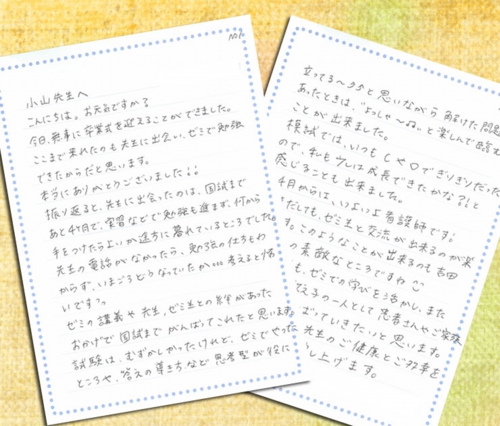 No.1
小山先生へ
こんにちは。お元気ですか?
今日、無事に卒業式を迎えることができました。
ここまで来れたのも先生に出会い、ゼミで勉強
できたからだと思います。
本当にありがとうございました!!
振り返ると、先生に出会ったのは、国試まで
あと4ヶ月で、実習などで勉強も進まず、何から
手をつけたらよいか途方に暮れているところでした。
先生の電話がなかったら、勉強の仕方もわ
からず、いまごろどうなっていたか…考えると怖
いですっ。
ゼミの講義や先生、ゼミ生との絆があった
おかげで国試までがんばってこれたと思います。
試験は、むずかしかったけれど、ゼミでやった
ところや、答えの導き方など思考型が役に
立ってる〜っ と思いながら解けた問題
あったときは、"よっしゃ〜" と楽しんで臨む
ことが出来ました。
模試では、いつもしゃ♡でぎりぎりだった
ので、私も少しは成長できたかな?!と
感じることも出来ました。
4月からは、いよいよ看護師です!
だしても、ゼミ生と交流が出来るのが楽
す。このようなことが出来るのも吉田
の素敵なところですね
も、ゼミでの学びを活かし、また
え子の一人として患者さんやご家族
ばっていきたいと思います。
先生のご健康とご多幸を
し上げます。